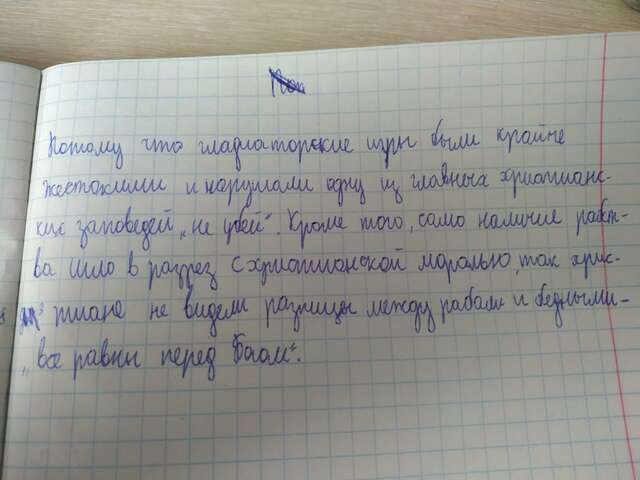 Потому что гладиаторские игры были крайне
жестокими и нарушали одну из главных христианс-
ких заповедей „не убей“. Кроме того, само наличие рабст-
ва шло в разрез с христианской моралью, так хрис-
тиане не видели разницы между рабами и бедными-
„все равны перед Богом“.